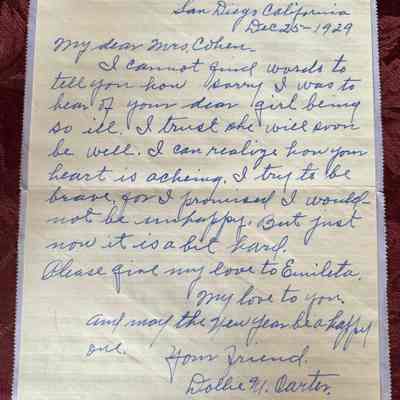 San Diego California
Dec 25 - 1929
My dear Mrs. Cohen -
I cannot find words to
tell you how sorry I was to
hear of your dear girl being
so ill. I trust she will soon
be well. I can realize how your
heart is acheing. I try to be
brave, for I promised I would
not be unhappy. But just
now it is a bit hard.
Please give my love to Emileta.
My love to you.
and may the New Year be a happy
one. Your Friend.
Dollie M. Carter.